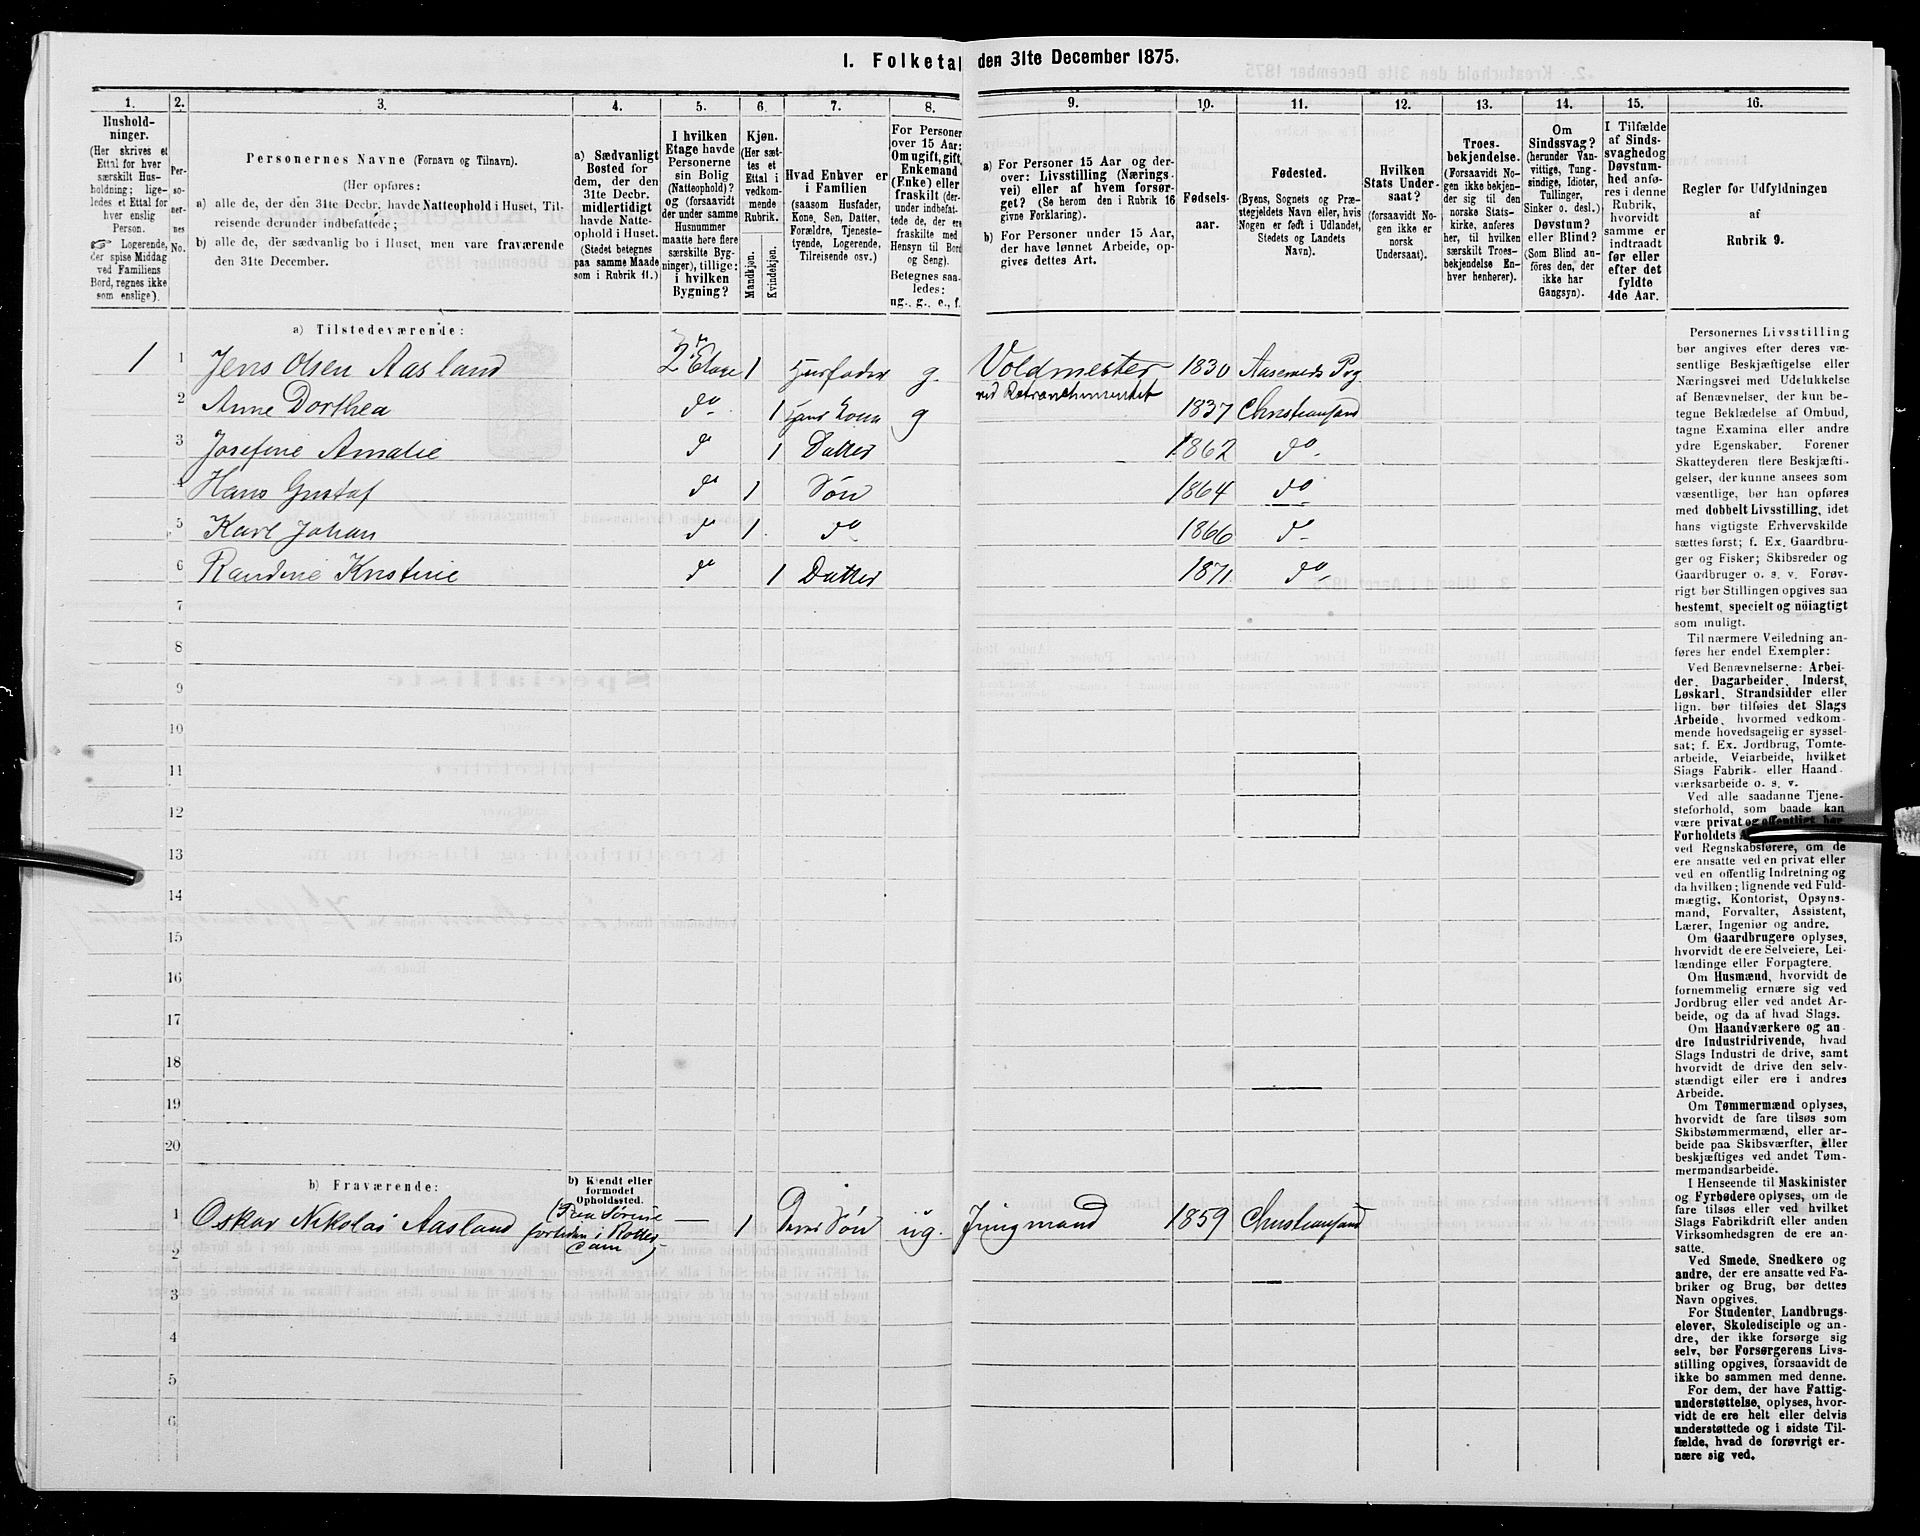 I. Folketal den 31te December 1875.
1. 2. 3. 4. 5. 6. 7. 8. 9. 10. 11. 12. 13. 14. 15. 16.
Hushold-
ninger.
(Her skrives et
Ettal for hver
særskilt Hus-
holdning; lige-
ledes et Ettal for
hver enslig
Person.
☞ Logerende,
der spise Middag
ved Familiens
Bord, regnes ikke
som enslige).
Per-
so-
ner-
nes
No.
Personernes Navne (Fornavn og Tilnavn).
(Her opføres:
a) alle de, der den 31te Decbr. havde Natteophold i Huset, Til-
reisende derunder indbefattede;
b) alle de, der sædvanlig bo i Huset, men vare fraværende
den 31te December.
a) Sædvanligt
Bosted for
dem, der den
31te Decbr.
midlertidigt
havde Natte-
ophold i Huset.
(Stedet betegnes
paa samme Maade
som i Rubrik 11.)
I hvilken
Etage havde
Personerne
sin Bolig
(Natteophold)?
og (forsaavidt
der under samme
Husnummer
maatte høre flere
særskilte Byg-
ninger), tillige:
i hvilken
Bygning?
Kjøn.
(Her sæt-
tes et
Ettal i
vedkom-
mende
Rubrik.
Mandkjøn.
Kvindekjøn.
Hvad Enhver er
i Familien
(saasom Husfader,
Kone, Søn, Datter,
Forældre, Tjeneste-
tyende, Logerende,
Tilreisende osv.)
For Personer
over 15 Aar:
Om ugift, gift,
Enkemand
(Enke) eller
fraskilt (der-
under indbefat-
tede de, der ere
fraskilte med
Hensyn til Bord
og Seng).
Betegnes saa-
ledes:
ug., g., e., f.
a) For Personer 15 Aar og der-
over: Livsstilling (Nærings-
vei) eller af hvem forsør-
get? (Se herom den i Rubrik 16
givne Forklaring).
b) For Personer under 15 Aar,
der have lønnet Arbeide, op-
gives dettes Art.
Fødsels-
aar.
Fødested.
(Byens, Sognets og Præ-
stegjeldets Navn eller, hvis
Nogen er født i Udlandet,
Stedets og Landets
Navn).
Hvilken
Stats Under-
saat?
(forsaavidt No-
gen ikke er
norsk
Undersaat).
Troes-
bekjendelse.
(Forsaavidt No-
gen ikke bekjen-
der sig til den
norske Stats-
kirke, anføres
her, til hvilken
særskilt Troes-
bekjendelse En-
hver henhører).
Om
Sindssvag?
(herunder Van-
vittige, Tung-
sindige, Idioter,
Tullinger,
Sinker o. desl.)
Døvstum?
eller Blind?
(Som Blind an-
føres den, der
ikke har
Gangsyn).
I Tilfælde
af Sinds-
svaghedog
Døvstum-
hed anfø-
res i denne
Rubrik,
hvorvidt
samme er
indtraadt
før eller
efter det
fyldte
4de Aar.
Regler for Udfyldningen
af
Rubrik 9.
a) Tilstedeværende:
1 1 Jens Olsen Aasland 2 Etage 1 Husfader g. Voldmester 1830 Aaserads Prg
ved Retranchementet
2 Anne Dorthea do 1 Hans Kone g 1837 Christiansand
3 Josefine Amalie do 1 Datter 1862 do
4 Hans Gustaf do 1 Søn 1864 do
5 Karl Johan do 1 do 1866 do
6 Randine Kristine do 1 Datter 1871 do
7
8
9
10
11
12
13
14
15
16
17
18
19
20
b) Fraværende:
b) Kjendt eller
formodet
Opholdssted.
1 Oskar Nikolai Aasland (Paa Søreise — 1 Deres Søn ug. Jungmand 1859 Christiansand
fortiden i Rotter
dam)
2
3
4
5
6
Personernes Livsstilling
bør angives efter deres væ-
sentlige Beskjæftigelse eller
Næringsvei med Udelukkelse
af Benævnelser, der kun be-
tegne Beklædelse af Ombud,
tagne Examina eller andre
ydre Egenskaber. Forener
Skatteyderen flere Beskjæfti-
gelser, der kunne ansees som
væsentlige, bør han opføres
med dobbelt Livsstilling, idet
hans vigtigste Erhvervskilde
sættes først; f. Ex. Gaardbru-
ger og Fisker; Skibsreder og
Gaardbruger o. s. v. Forøv-
rigt bør Stillingen opgives saa
bestemt, specielt og nöiagtigt
som muligt.
Til nærmere Veiledning an-
føres her endel Exempler:
Ved Benævnelserne: Arbei-
der, Dagarbeider, Inderst,
Løskarl, Strandsidder eller
lign. bør tilføies det Slags
Arbeide, hvormed vedkom-
mende hovedsagelig er syssel-
sat; f. Ex. Jordbrug, Tomte-
arbeide, Veiarbeide, hvilket
Slags Fabrik- eller Haand-
værksarbeide o. s. v.
Ved alle saadanne Tjene-
steforhold, som baade kan
være privat og offentligt, bør
Forholdets
ved Regnskabsførere, om de
ere ansatte ved en privat eller
ved en offentlig Indretning og
da hvilken; lignende ved Fuld-
mægtig, Kontorist, Opsyns-
mand, Forvalter, Assistent,
Lærer, Ingeniør og andre.
Om Gaardbrugere oplyses,
hvorvidt de ere Selveiere, Lei-
lændinge eller Forpagtere.
Om Husmænd, hvorvidt de
fornemmelig ernære sig ved
Jordbrug eller ved andet Ar-
beide, og da af hvad Slags.
Om Haandværkere og an-
dre Industridrivende, hvad
Slags Industri de drive, samt
hvorvidt de drive den selv-
stændigt eller ere i andres
Arbeide.
Om Tømmermænd oplyses,
hvorvidt de fare tilsøs som
Skibstømmermænd, eller ar-
beide paa Skibsværfter, eller
beskjæftiges ved andet Tøm-
mermandsarbeide.
I Henseende til Maskinister
og Fyrbødere oplyses, om de
fare tilsøs eller ved hvilket
Slags Fabrikdrift eller anden
Virksomhedsgren de ere an-
satte.
Ved Smede, Snedkere og
andre, der ere ansatte ved Fa-
briker og Brug, bør dettes
Navn opgives.
For Studenter, Landbrugs-
elever, Skoledisciple og an-
dre, der ikke forsørge sig
selv, bør Forsørgerens Livs-
stilling opgives, forsaavidt de
ikke bo sammen med denne.
For dem, der have Fattig-
understøttelse, oplyses, hvor-
vidt de ere helt eller delvis
understøttede og i sidste Til-
fælde, hvad de forøvrigt er-
nære sig ved.